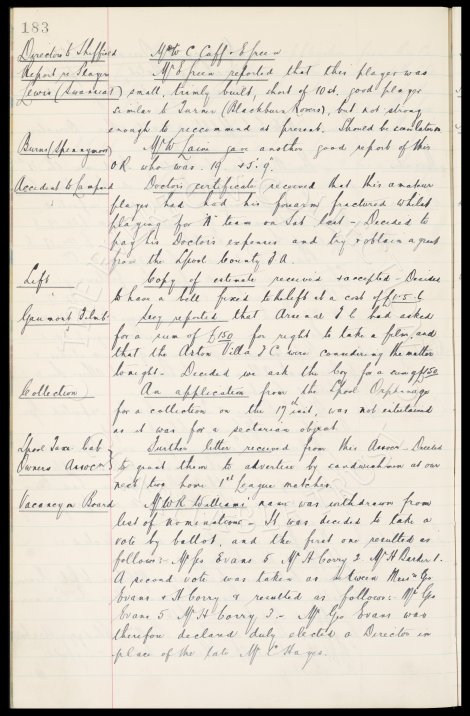 183
Directors to Sheffield Mr W C Cuff & Green
Report re Player Mr Green reported that this player was
Lewis (Swansea) small, trimly built, chest of 10 st, good player
similar to Turner (Blackburn Rovers), but not strong
enough to reccommend at present. Should be
Burns (Spennymoor) Mr W gave another good report of this
O.R. who was 19 & 5' 9"
Accident to Doctors certificate received that this amateur
player had had his forearm fractured whilst
playing for "A" team on Sat last - Decided to
pay his Doctors expenses and try & obtain a grant
from the Lpool County F.A.
Lift Copy of estimate received & accepted - Decided
to have a bell fixed to the lift at a cost of £1-5-6
Gaumont Films Secy reported that Arsenal F C had asked
for a sum of £150 for right to take a film, and
that the Aston Villa F C were considering the matter
tonight - Decided we ask the Coy for a sum £150
Collection An application from the Lpool Orphanage
for a collection on the 17th inst, was not entertained
as it was for a sectarian object
Lpool Taxi Cab Further letter received from this Assocn - Decided
Owners Assocn to grant them to advertise by sandwichmen at our
next two home 1st League matches.
Vacancy on Board Mr W R Williams' name was withdrawn from
list of nominations - It was decided to take a
vote by ballot, and the first one resulted as
follows:- Mr Geo Evans 5 Mr H Corry 2 Mr H 1.
A second vote was taken as between Messrs Geo
Evans & H Corry & resulted as follows:- Mr Geo
Evans 5 Mr H Corry 3 - Mr Geo Evans was
therefore declared duly elected a Director in
place of the late Mr C Hayes.